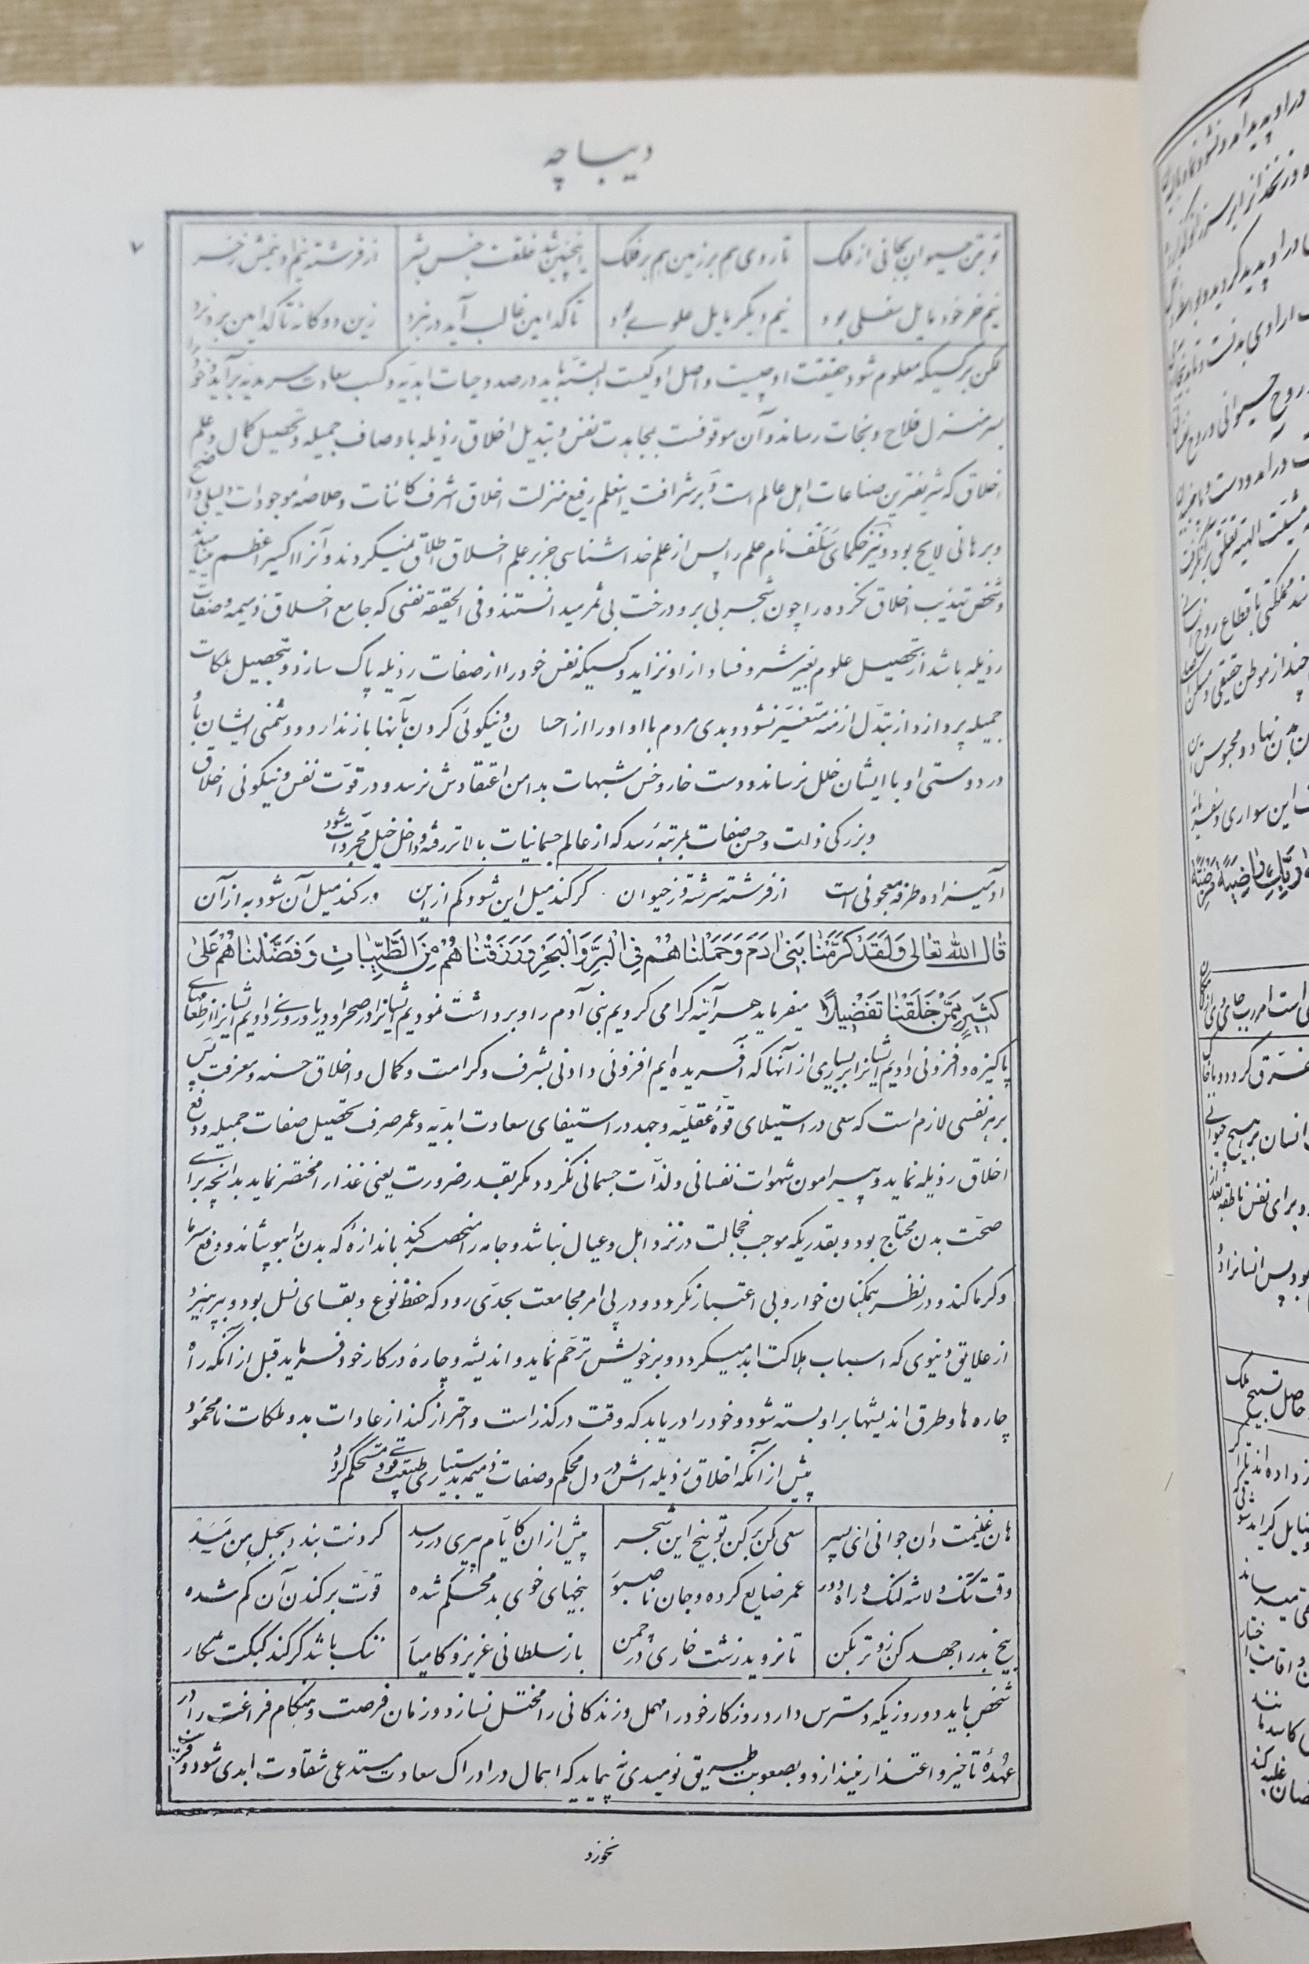 دیباچه
۷
تو بتن حیوان بجانی از ملک تا روی هم بر زمین هم بر فلک اینچنین شد خلقت جنس بشر از فرشته نیم او نیمش ز خر
نیم خر خود مایل سفلی بود نیم دیگر مایل علوی بود تا کدامین غالب آید در نبرد زین دوگانه تا کدامین برد نرد
لکن بر کسیکه معلوم شود حقیقت او چیست و اصل او کیست البته باید در صدد حیات ابدیه و کسب سعادت سرمدیه برآید و خود را
بسر منزل فلاح و نجات رساند و آن موقوفست بمجاهدت نفس و تبدیل اخلاق رذیله باوصاف جمیله و تحصیل کمال و علم
اخلاق که شریفترین صناعات اهل عالم است و بر شرافت اینعلم رفیع منزلت اخلاق اشرف کائنات و خلاصه موجودات دلیلی واضح
و برهانی لایح بود و نیز حکمای سلف نام علم را پس از علم خدا شناسی جز بر علم اخلاق اطلاق نمیکردند و آنرا اکسیر اعظم مینامیدند
و شخص تهذیب اخلاق نکرده را چون شجر بی بر و درخت بی ثمر میدانستند و فی الحقیقه نفسی که جامع اخلاق ذمیمه و صفات
رذیله باشد از تحصیل علوم بغیر شر و فساد از او نزاید و کسیکه نفس خود را از صفات رذیله پاک سازد و بتحصیل ملکات
جمیله پردازد از تبدل ازمنه متغیر نشود و بدی مردم با او او را از احسان و نیکوئی کردن بآنها باز ندارد و دشمنی ایشان با او
در دوستی او با ایشان خلل نرساند و دست خار و خس شبهات بدامن اعتقادش نرسد و در قوت نفس و نیکوئی اخلاق
و بزرگی ذات و حسن صفات بمرتبه رسد که از عالم جسمانیات بالاتر رفته و داخل خیل مجردات شود
آدمیزاده طرفه معجونی است از فرشته سرشته وز حیوان گر کند میل این شود کم ازین ور کند میل آن شود به از آن
قال الله تعالی وَلَقَدْ كَرَّمْنا بَنی ادَمَ وَحَمَلْناهُمْ فِی الْبَرِّ وَالْبَحْرِ وَرَزَقْناهُمْ مِنَ الطَّیِّباتِ وَفَضَّلْناهُمْ عَلی
كَثیرٍ مِمَّنْ خَلَقْنا تَفْضیلاً میفرماید هر آینه گرامی کردیم بنی آدم را و برداشت نمودیم ایشانرا در صحرا و دریا و روزی دادیم ایشانرا از طعامهای
پاکیزه و فزونی دادیم ایشانرا بر بسیاری از آنها که آفریده ایم افزونی دادنی بشرف و کرامت و کمال و اخلاق حسنه و معرفت پس
بر هر نفسی لازم است که سعی در استیلای قوه عقلیه و جهد در استیفای سعادت ابدیه و عمر صرف تحصیل صفات جمیله و دفع
اخلاق رذیله نماید و پیرامون شهوات نفسانی و لذات جسمانی نگردد مگر بقدر ضرورت یعنی غذا را مختصر نماید بدانچه برای
صحت بدن محتاج بود و بقدریکه موجب خجالت در نزد اهل و عیال نباشد و جامه را منحصر کند باندازه که بدن را بپوشاند و دفع سرما
و گرما کند و در نظر همگنان خوار و بی اعتبار نگردد و در پی امر مجامعت بحدی رود که حفظ نوع و بقای نسل بود و بپرهیزد
از علایق دنیوی که اسباب هلاکت ابد میگردد و بر خویش ترحم نماید و اندیشه و چاره در کار خود فرماید قبل از آنکه راه
چاره ها و طرق اندیشها بر او بسته شود و خود را دریابد که وقت درگذر است و احتراز کند از عادات بد و ملکات نامحمود
پیش از آنکه اخلاق رذیله اش در دل محکم و صفات ذمیمه بدستیاری طبیعت قوی و مستحکم گردد
هان غنیمت دان جوانی ای پسر سعی کن برکن تو بیخ این شجر پیش از ان کایام پیری در رسد گردنت بندد بحبل من مسد
وقت تنگ و لاشه لنگ و راه دور عمر ضایع کرده و جان ناصبور بیخهای خوی بد محکم شده قوت برکندن آن کم شده
بیخ بد را جهد کن زوتر بکن تا نروید زشت خاری در چمن باز سلطانی عزیز و کامیار ننگ باشد گر کند کبکت شکار
شخص باید دو روزیکه دسترس دارد روزگار خود را مهمل و زندگانی را مختل نسازد و زمان فرصت و هنگام فراغت را در
عهده تاخیر و اعتذار نیندازد و بصعوبت طریق نومیدی نه پیماید که اهمال در ادراک سعادت مستدعی شقاوت ابدی شود و
نخورد